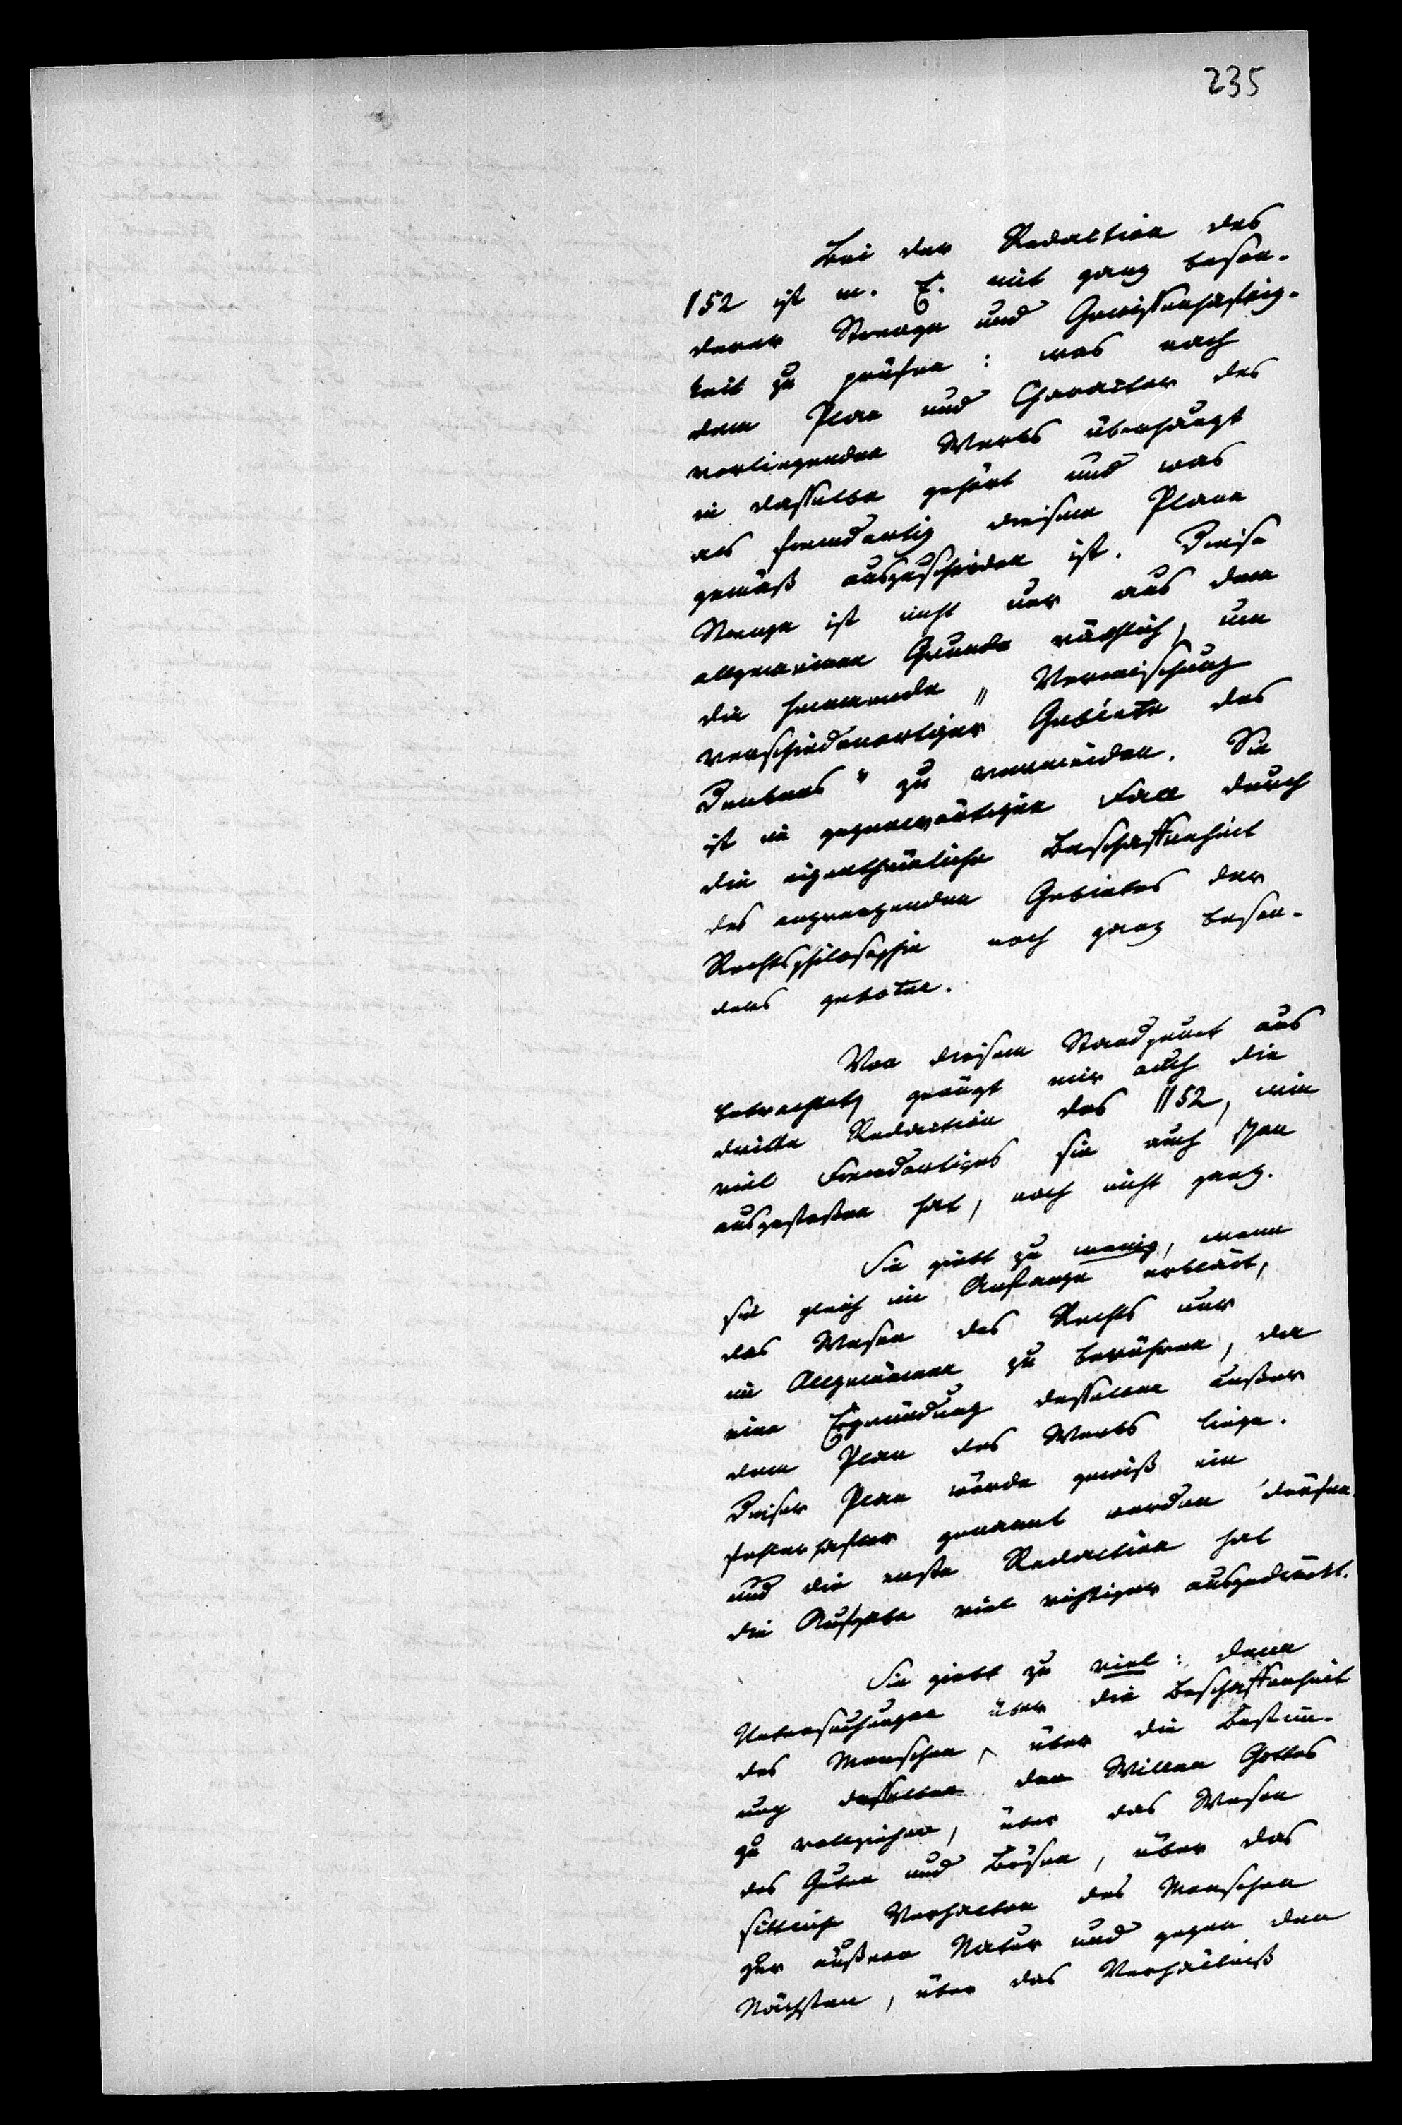 235
Bei der Redaction des
§ 52 ist m. E. mit ganz beson-
derer Strenge und Gewissenhaftig-
keit zu prüfen: was nach
dem Plan und Character des
vorliegenden Werks überhaupt
in dasselbe gehört und was
als fremdartig diesem Plane
gemäß auszuscheiden ist. Diese
Strenge ist nicht nur aus dem
allgemeinen Grunde räthlich, um
die hemmende „Vermischung
verschiedenartiger Gebiete des
Denkens" zu vermeiden. Sie
ist im gegenwärtigen Fall durch
die eigenthümliche Beschaffenheit
des angrenzenden Gebietes der
Rechtsphilosophie noch ganz beson-
ders geboten.
Von diesem Standpunct aus
betrachtet, genügt mir auch die
dritte Redaction des § 52, wie
viel Fremdartiges sie auch schon
ausgestoßen hat, noch nicht ganz.
Sie giebt zu wenig, wenn
sie gleich im Anfange erklärt,
das Wesen des Rechts nur
im Allgemeinen zu berühren, da
eine Ergründung desselben außer
dem Plan des Werks liege.
Dieser Plan würde gewiß ein
fehlerhafter genannt werden dürfen
und die erste Redaction hat
die Aufgabe viel richtiger ausgedrückt.
Sie giebt zu viel: denn
Untersuchungen über die Beschaffenheit
des Menschen, über die Bestim-
ung desselben den Willen Gottes
zu vollziehen, über das Wesen
des Guten und Bösen, über das
sittliche Verhalten des Menschen
zur äußern Natur und gegen den
Nächsten, über das Verhältniß